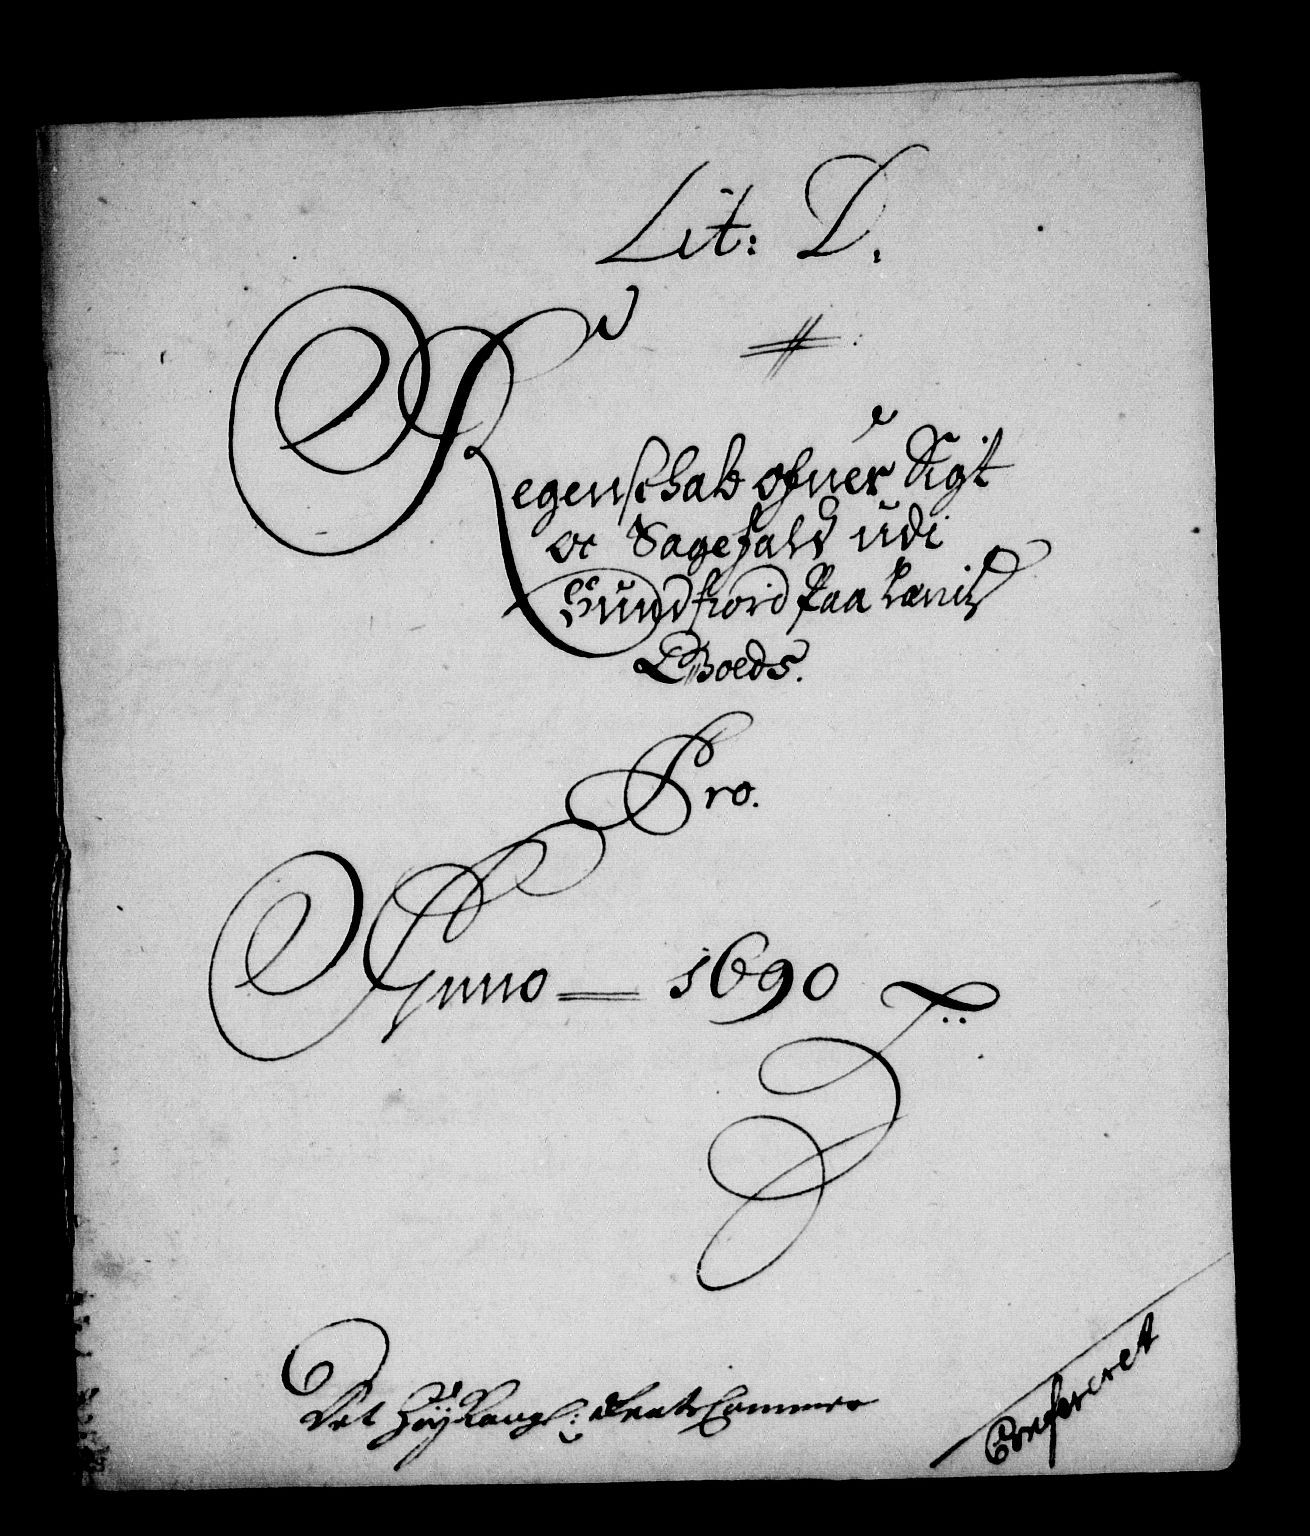 Lit: D.
Regenschab ofver Sigt
oc Sagefald udi
Sundfiord paa
Goeds.
Pro.
Anno 1690
Det Høy Kongl: Rente Cammer
Confereret